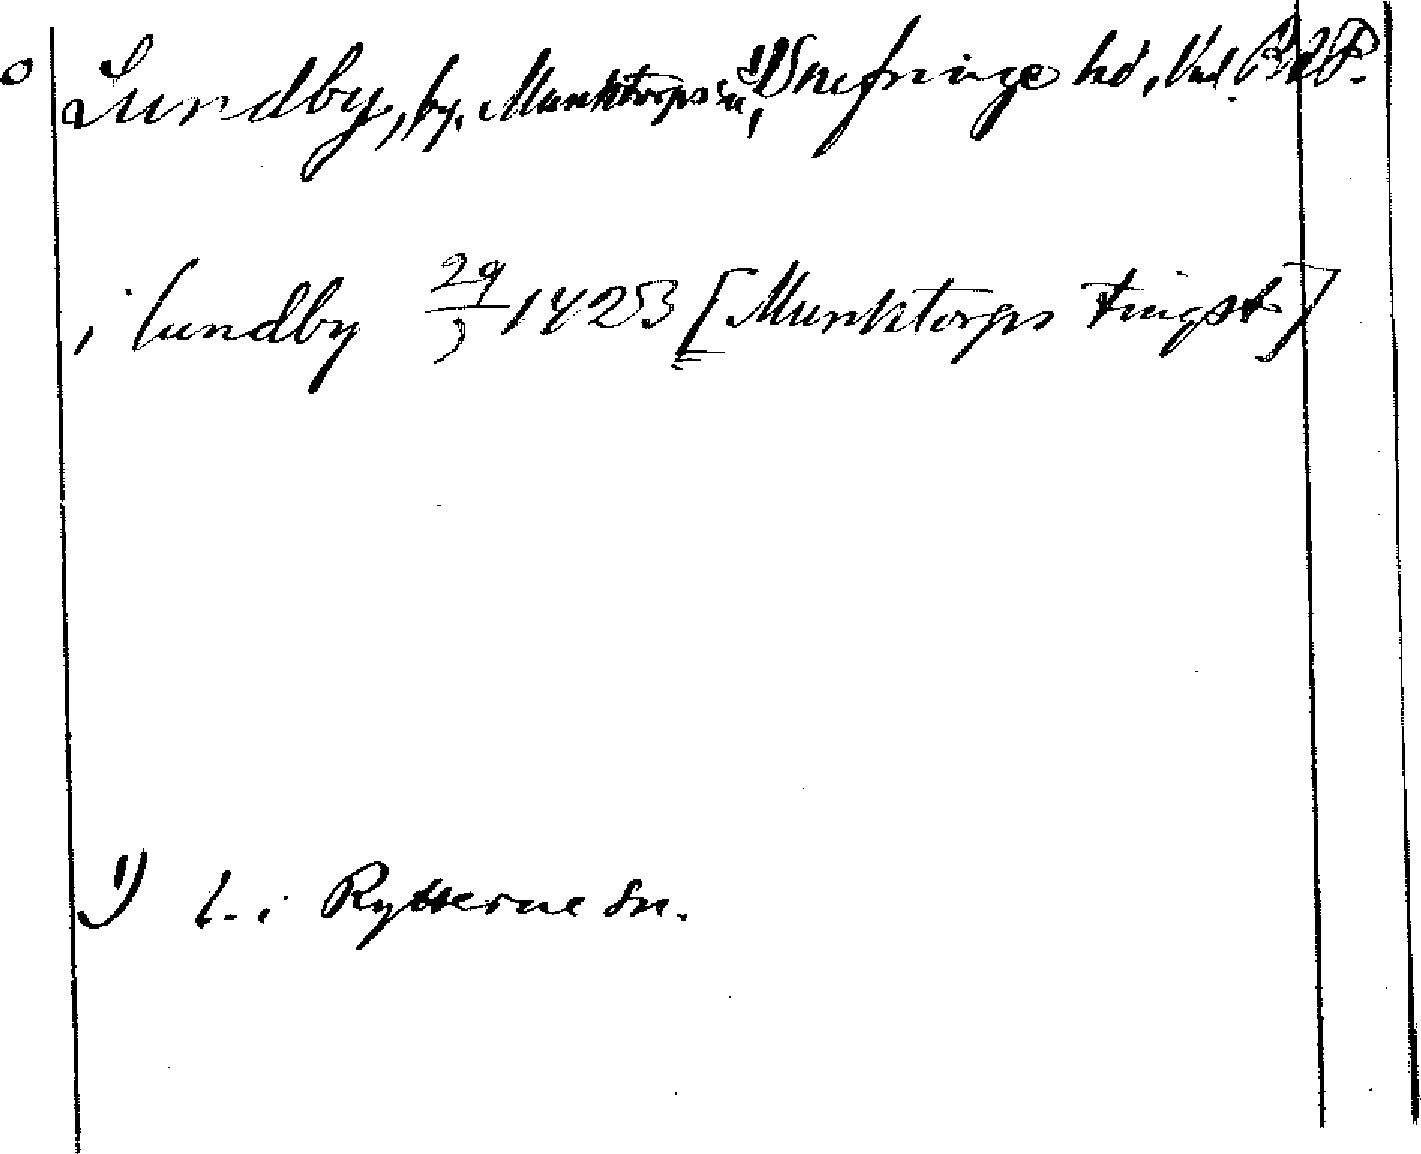 Lundby, by, Munktorps sn,¹⁾ Snefringe hd, Vml.
i lundby 29/3 1423 [Munktorps tingst.]
1) L. i Rytterne sn.